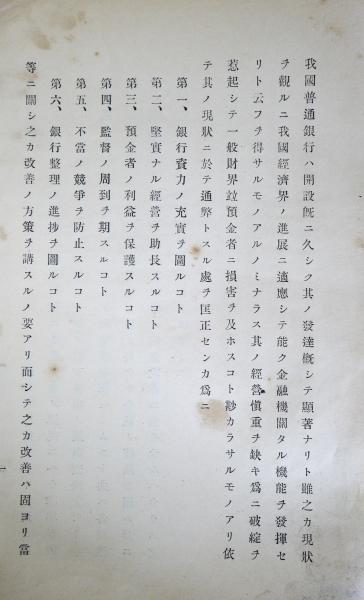 我國普通銀行ハ開設旣ニ久シク其ノ發達槪シテ顯著ナリト雖之カ現狀
ヲ觀ルニ我國經濟界ノ進展ニ適應シテ能ク金融機關タル機能ヲ發揮セ
リト云フヲ得サルモノアルノミナラス其ノ經營愼重ヲ缺キ爲ニ破綻ヲ
惹起シテ一般財界竝預金者ニ損害ヲ及ホスコト尠カラサルモノアリ依
テ其ノ現狀ニ於テ通弊トスル處ヲ匡正センカ爲ニ
第一、銀行資力ノ充實ヲ圖ルコト
第二、堅實ナル經營ヲ助長スルコト
第三、預金者ノ利益ヲ保護スルコト
第四、監督ノ周到ヲ期スルコト
第五、不當ノ競爭ヲ防止スルコト
第六、銀行整理ノ進捗ヲ圖ルコト
等ニ關シ之カ改善ノ方策ヲ講スルノ要アリ而シテ之カ改善ハ固ヨリ當
一